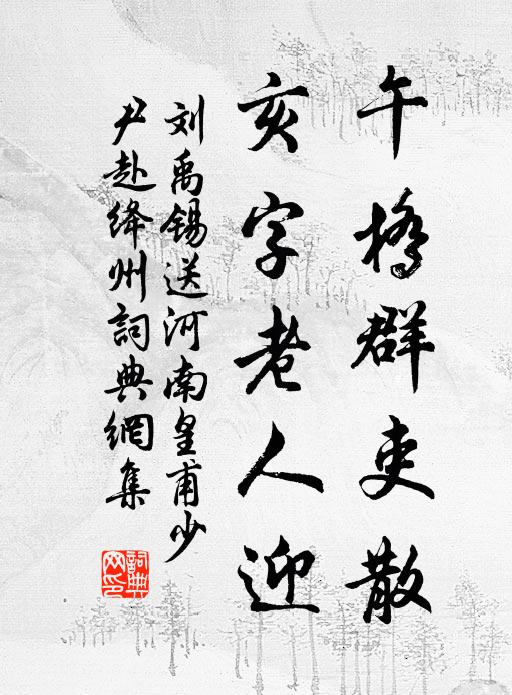 午橋群吏散
亥字老人迎
刘禹锡送河南皇甫少
尹赴绛州詞典網集
詞典網印